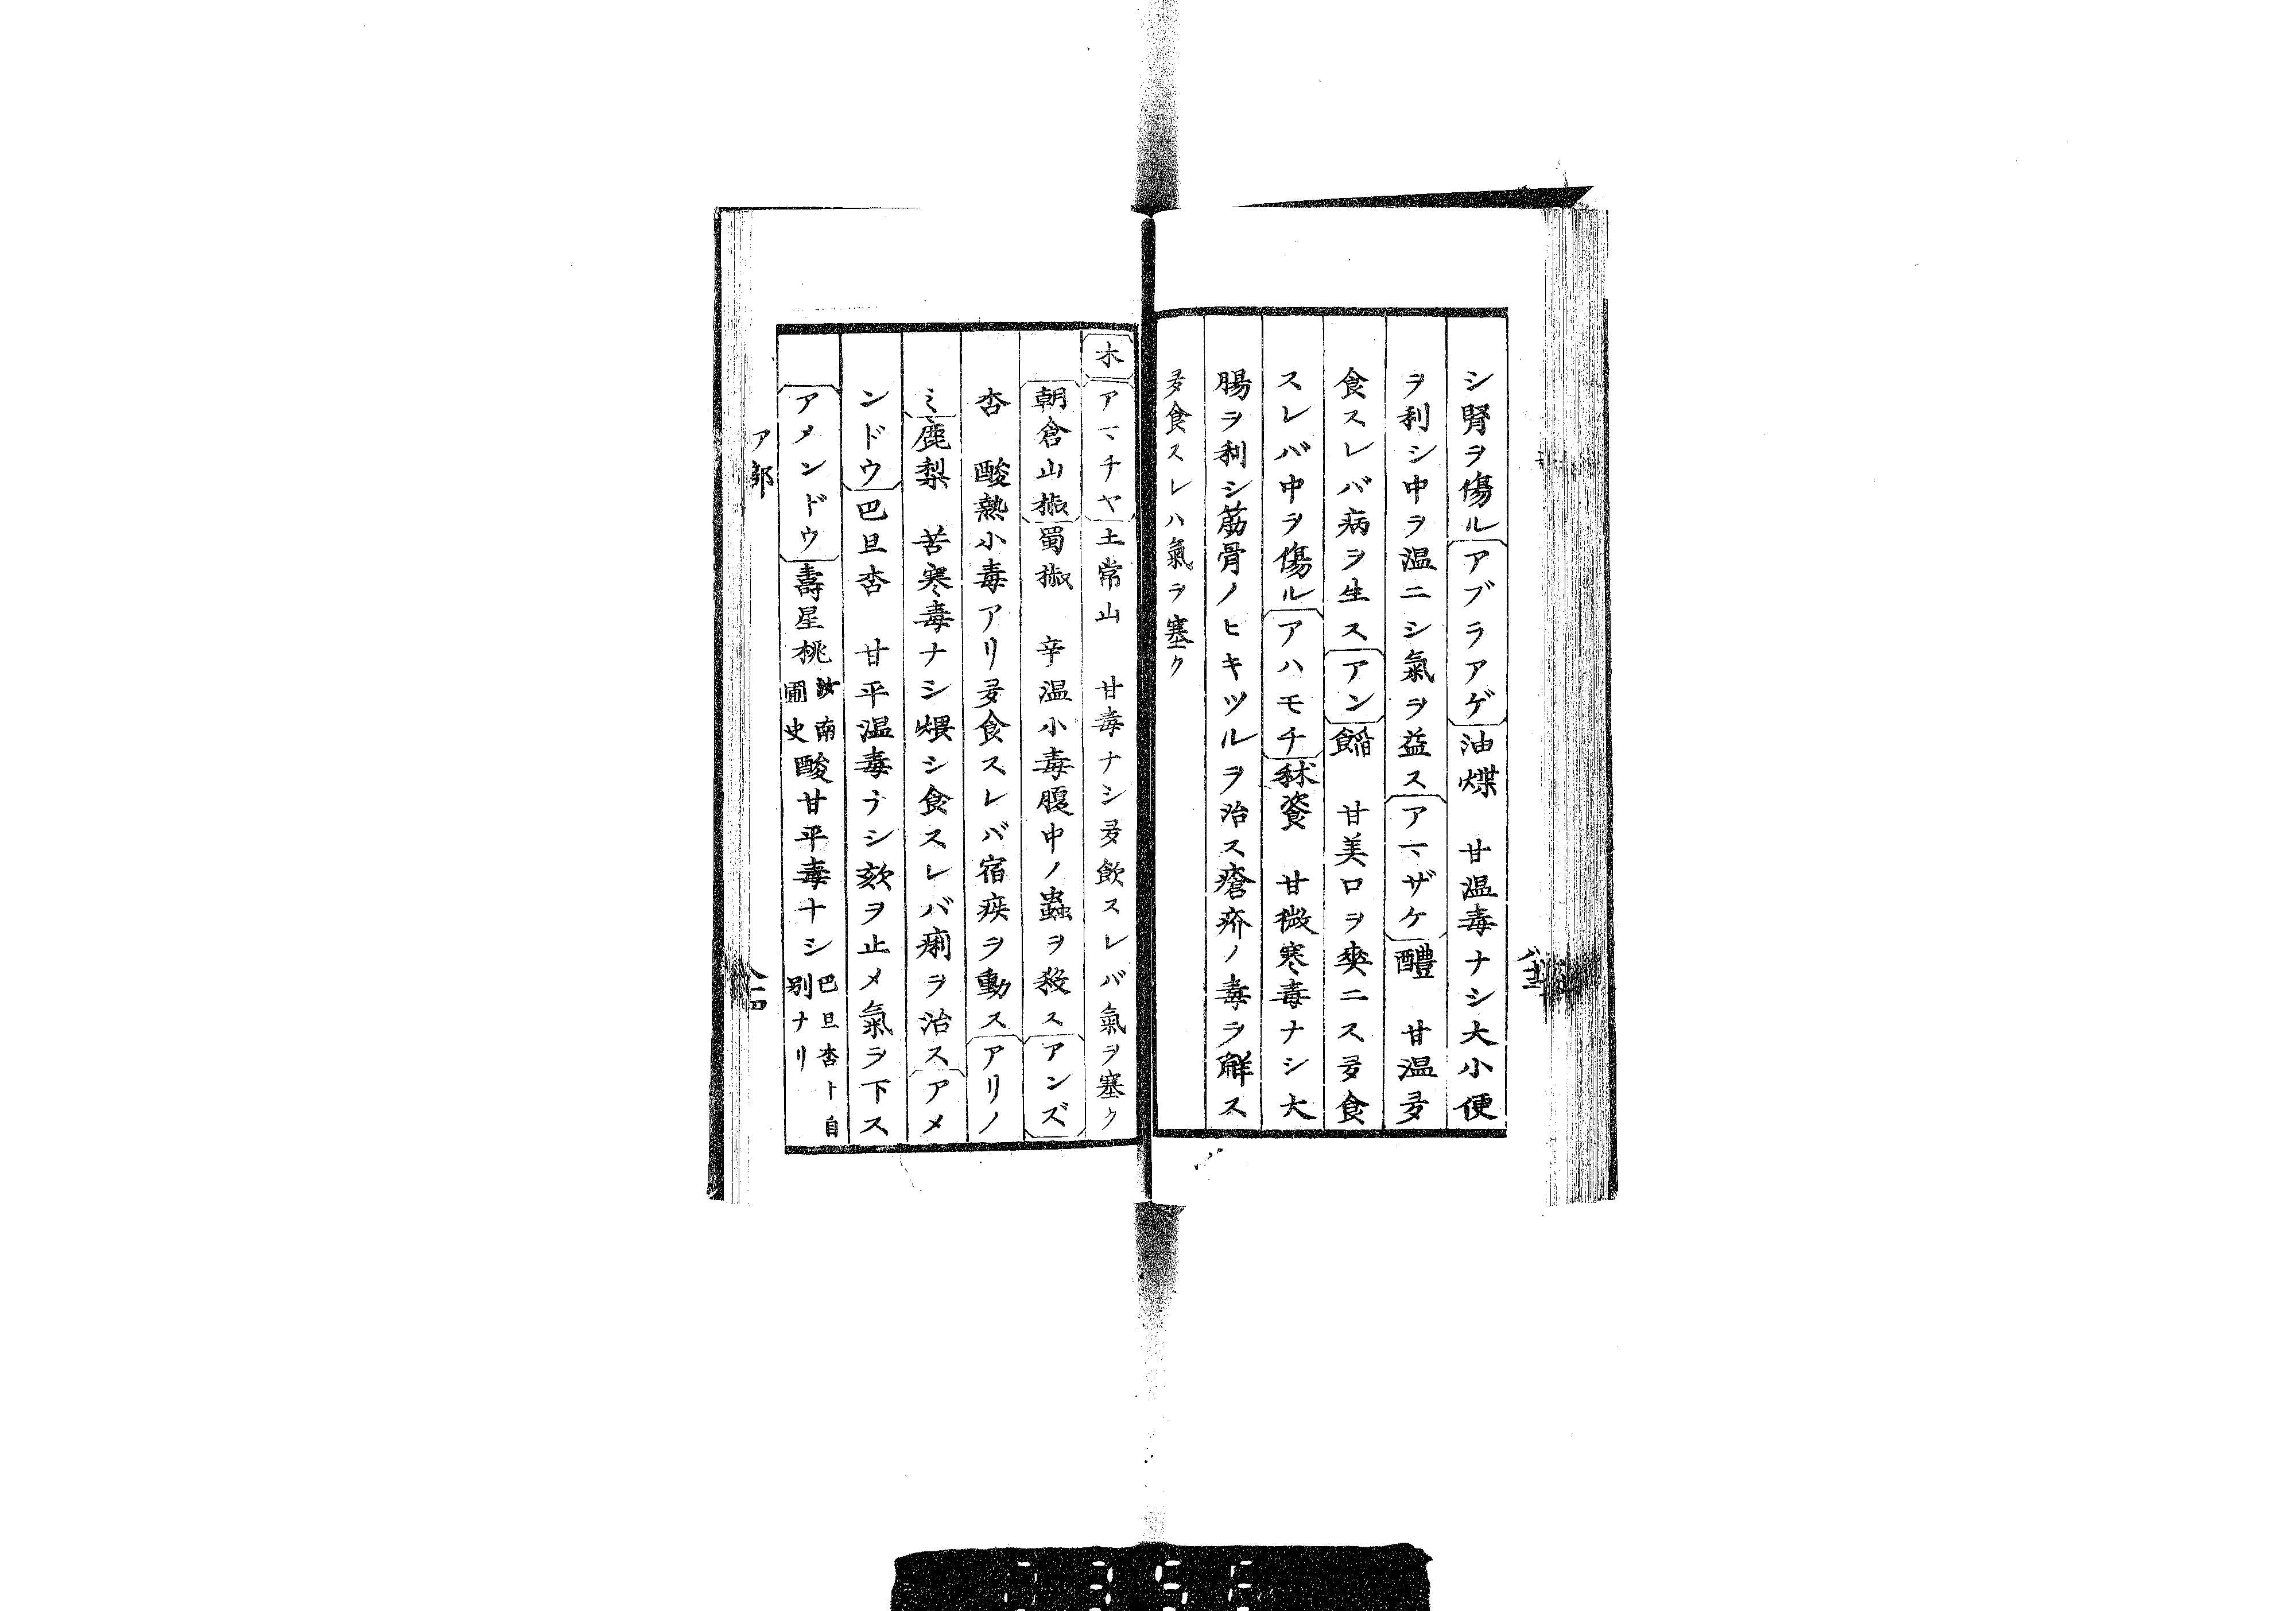 シ腎ヲ傷ルアブラアゲ油煠　甘温毒ナシ大小便
ヲ利シ中ヲ温ニシ氣ヲ益スアマザケ醴　甘温多
食スレバ病ヲ生スアン餡　甘美口ヲ爽ニス多食
スレバ中ヲ傷ルアハモチ秫餈　甘微寒毒ナシ大
腸ヲ利シ筋骨ノヒキツルヲ治ス瘡疥ノ毒ヲ解ス
多食スレハ氣ヲ塞ク
木アマチヤ土常山　甘毒ナシ多飲スレバ氣ヲ塞ク
朝倉山椒蜀椒　辛温小毒腹中ノ蟲ヲ殺スアンズ
杏　酸熱小毒アリ多食スレバ宿疾ヲ動スアリノ
ミ鹿梨　苦寒毒ナシ煨シ食スレバ痢ヲ治スアメ
ンドウ巴旦杏　甘平温毒ナシ欬ヲ止メ氣ヲ下ス
アメンドウ壽星桃汝南圃史酸甘平毒ナシ巴旦杏ト自別ナリ
ア部